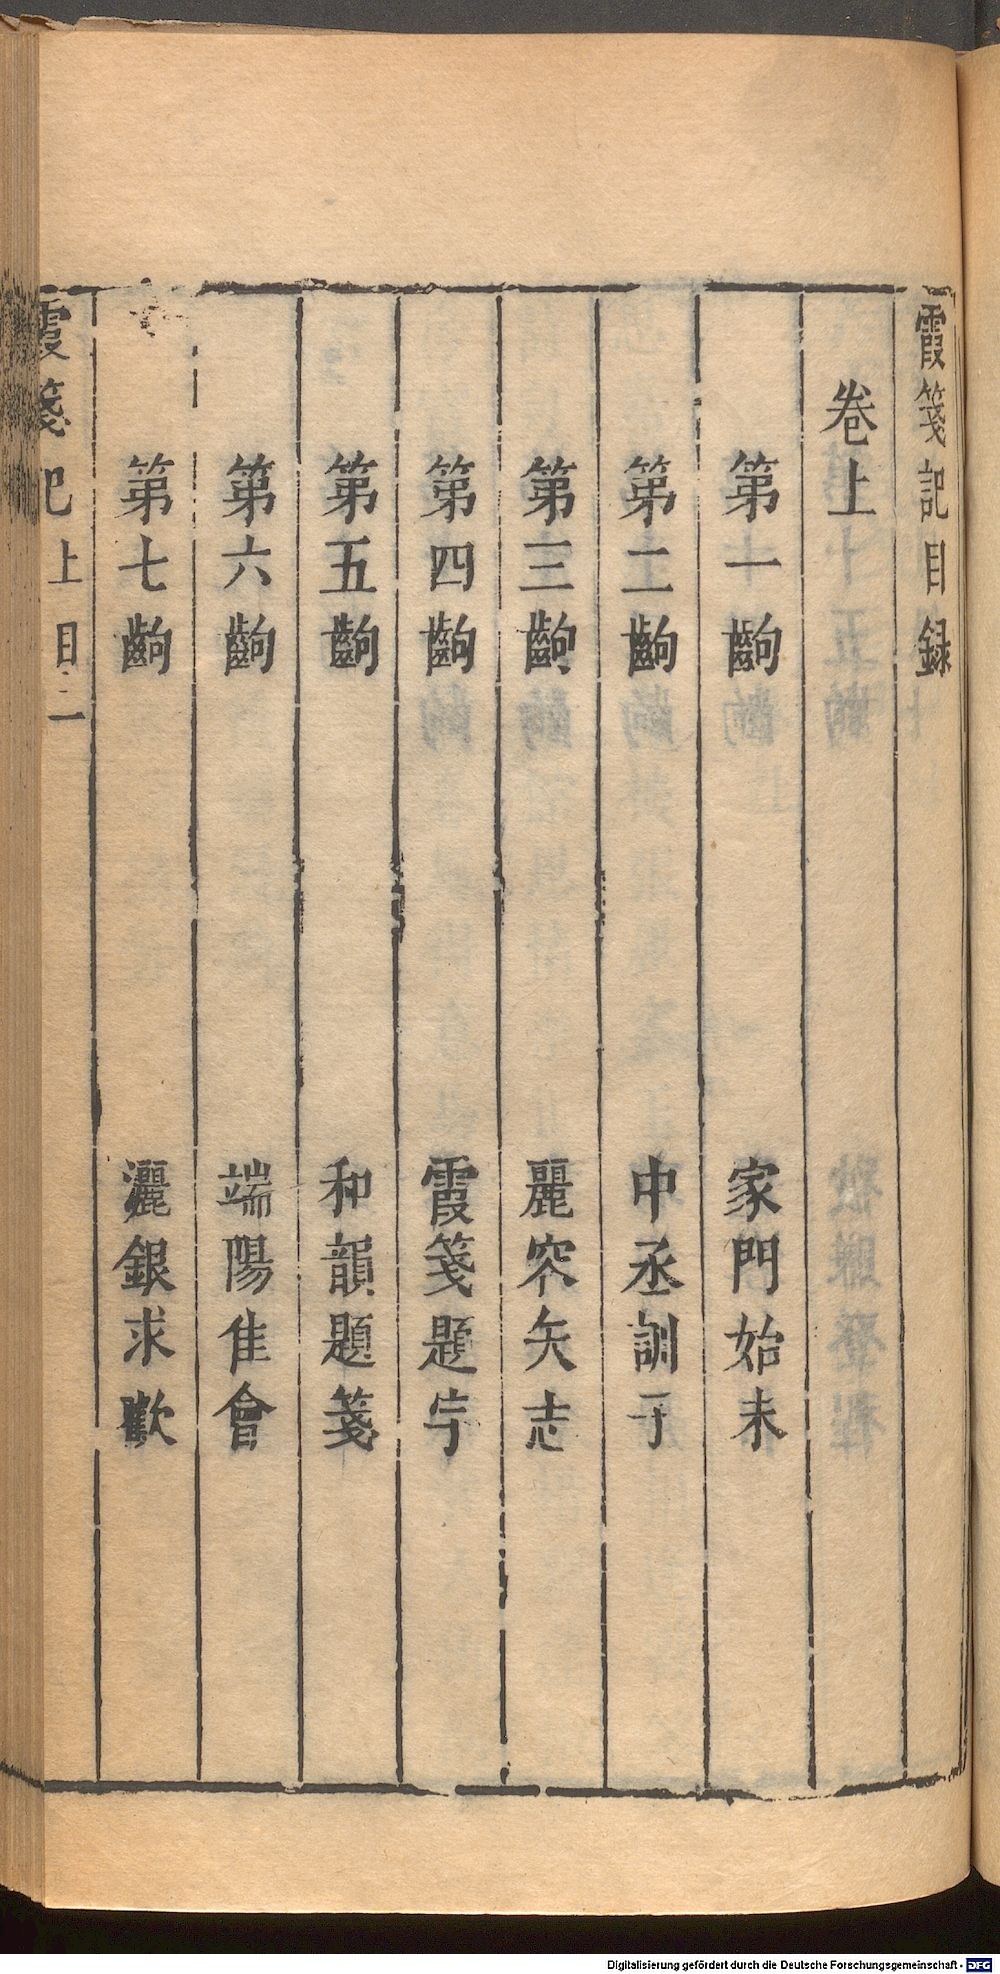 霞箋記目録
卷上
第一齣 家門始末
第二齣 中丞訓子
第三齣 麗容矢志
第四齣 霞箋題字
第五齣 和韻題箋
第六齣 端陽佳會
第七齣 灑銀求歡
霞箋記 上目 一
Digitalisierung gefördert durch die Deutsche Forschungsgemeinschaft - DFG